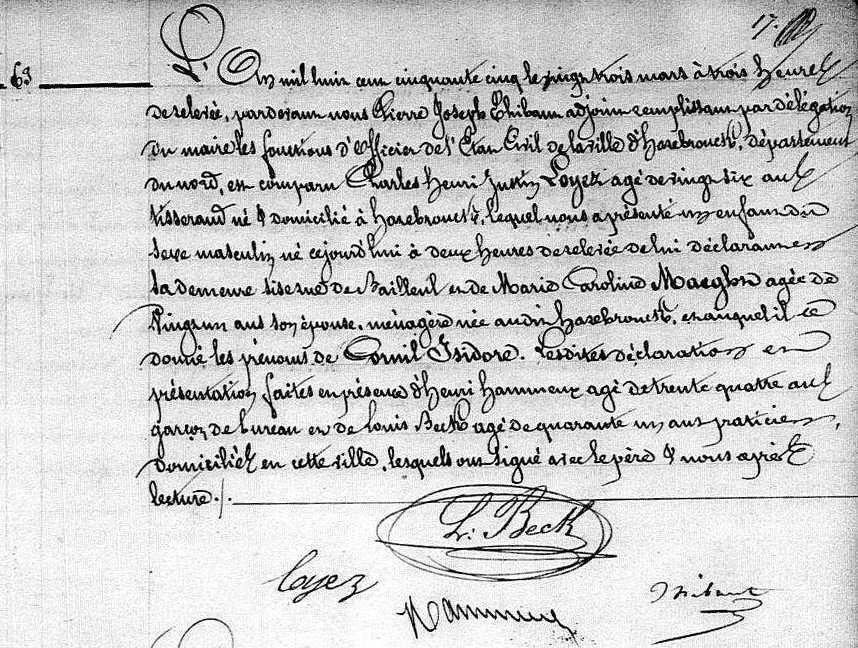 17.
63
L'An mil huit cent cinquante cinq le vingt trois mars à trois heures
de relevée, pardevant nous Pierre Joseph Thibaut adjoint remplissant par délégation
du maire les fonctions d'officier de l'Etat Civil de la ville d'hazebrouck, département
du nord, est comparu Charles henri Justin Loyez agé de vingt six ans
tisserand né & domicilié à hazebrouck, lequel nous a présenté un enfant du
sexe masculin né cejourd'hui à deux heures de relevée de lui déclarant en
sa demeure sise rue de Bailleul et de Marie Caroline Maeght agée de
Vingt un ans son épouse, ménagère née audit hazebrouck, et auquel il a
donné les prénoms de Cornil Isidore. Lesdites déclaration et
présentation faites en présence d'henri hammeux agé de trente quatre ans
garçon de bureau et de louis Beck agé de quarante un ans praticien,
domiciliés en cette ville, lesquels ont signé avec le père & nous après
lecture ./.
L. Beck
Loyez
Thibaut
hammeux